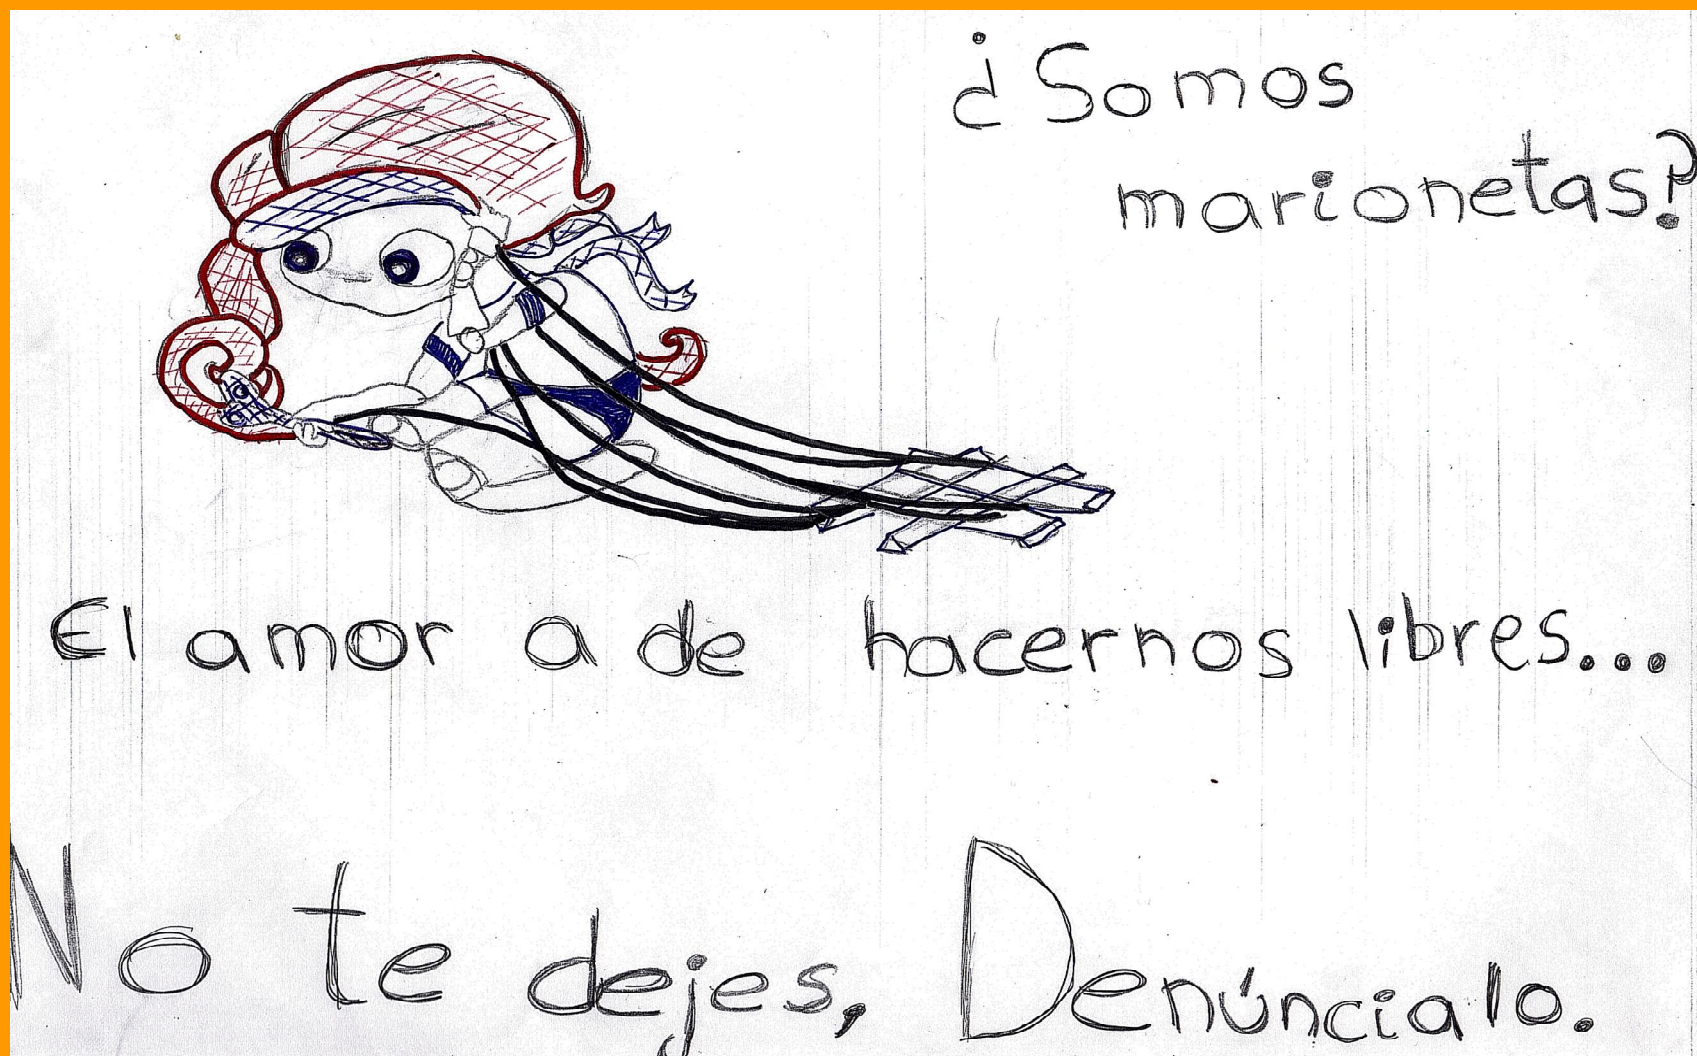 ¿Somos
marionetas?
El amor a de hacernos libres...
No te dejes, Denúncialo.